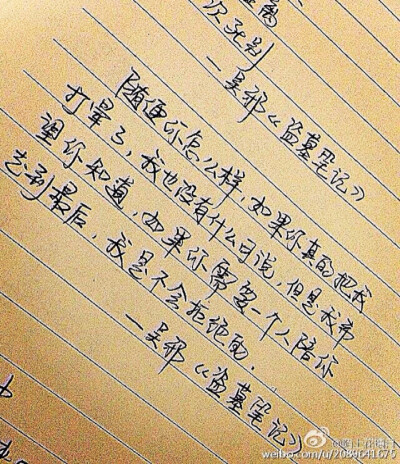 次死别
—吴邪《盗墓笔记》
随便你怎么样,如果你真的把我
打晕了,我也没有什么可说,但是我希
望你知道,如果你需要一个人陪你
走到最后,我是不会拒绝的.
—吴邪《盗墓笔记》
weibo.com/u/2089641675